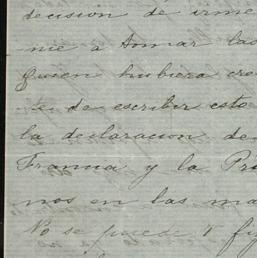 decision de irme
me a tomar las
Quien hubiera cre
te de escribir esto
la declaracion de
Francia y la Pru
nos en las ma
No se puede